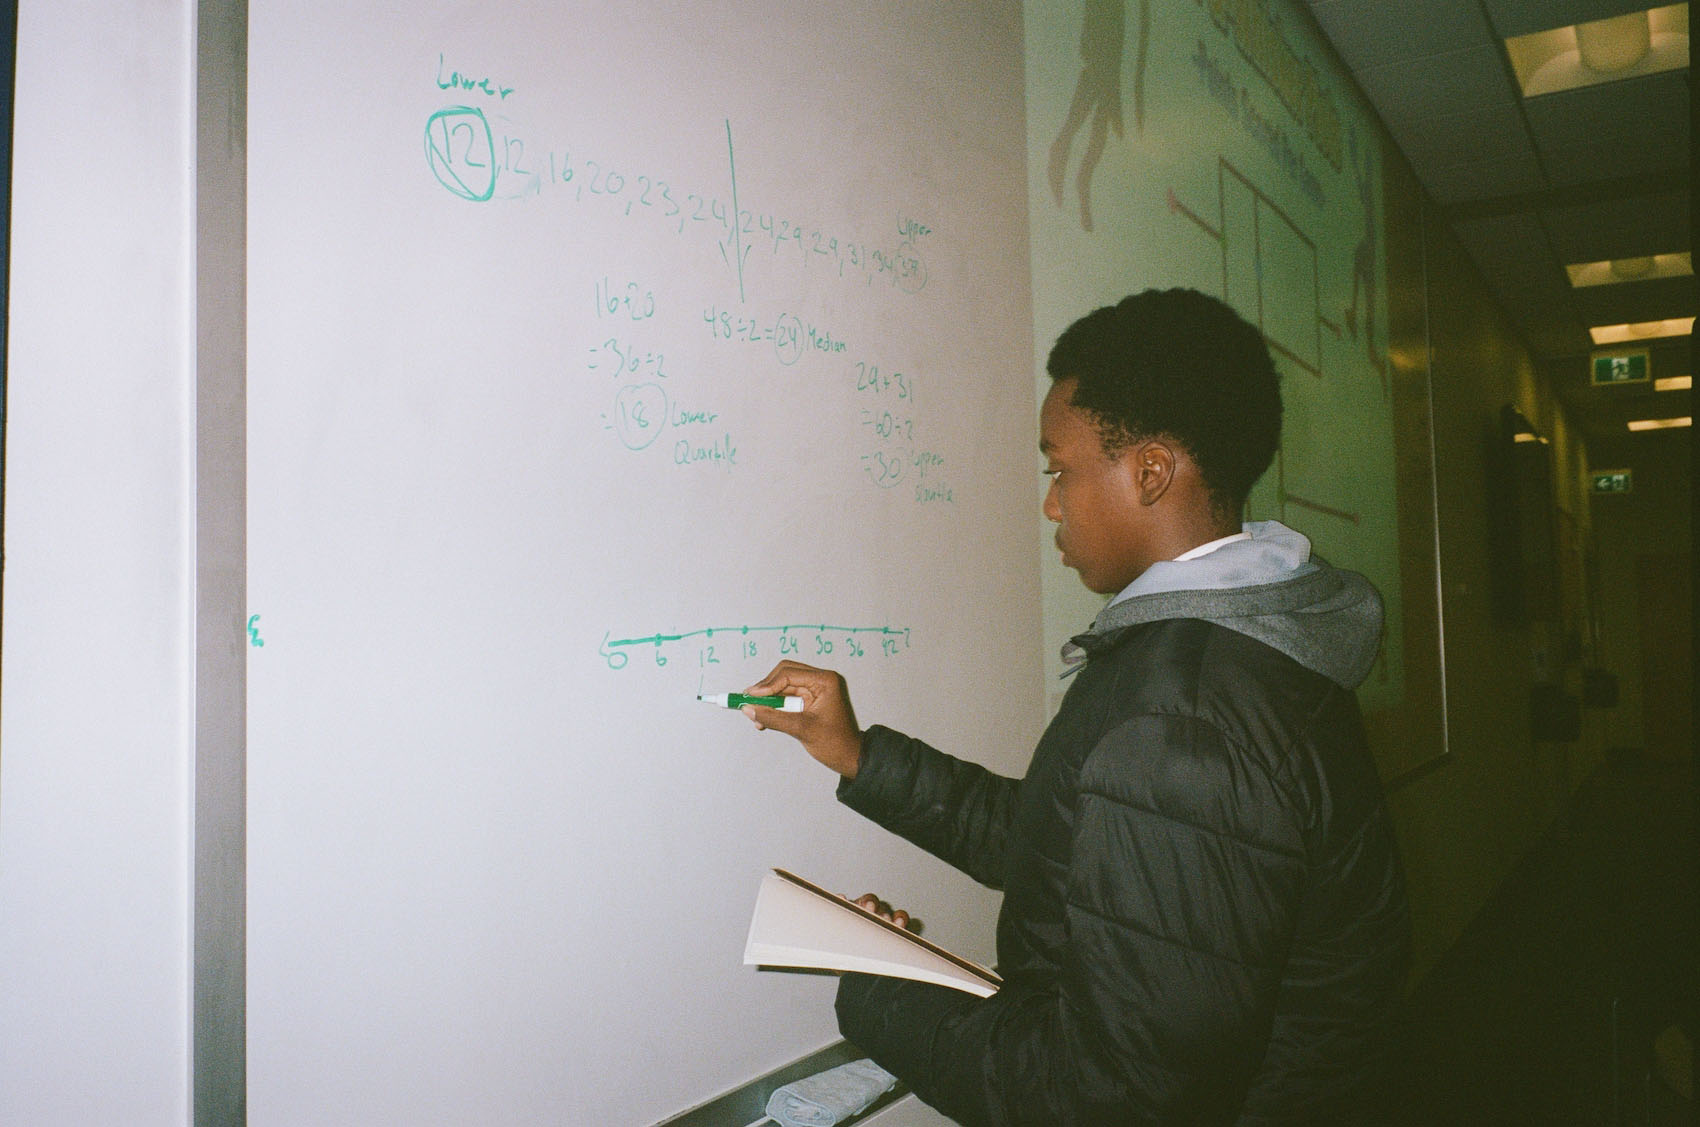 Lower
12, 12, 16, 20, 23, 24, 24, 29, 29, 31, 34, 38
Upper
16+20
=36÷2
=18 Lower
Quartile
48÷2=24 Median
29+31
=60÷2
=30 Upper
0 6 12 18 24 30 36 42